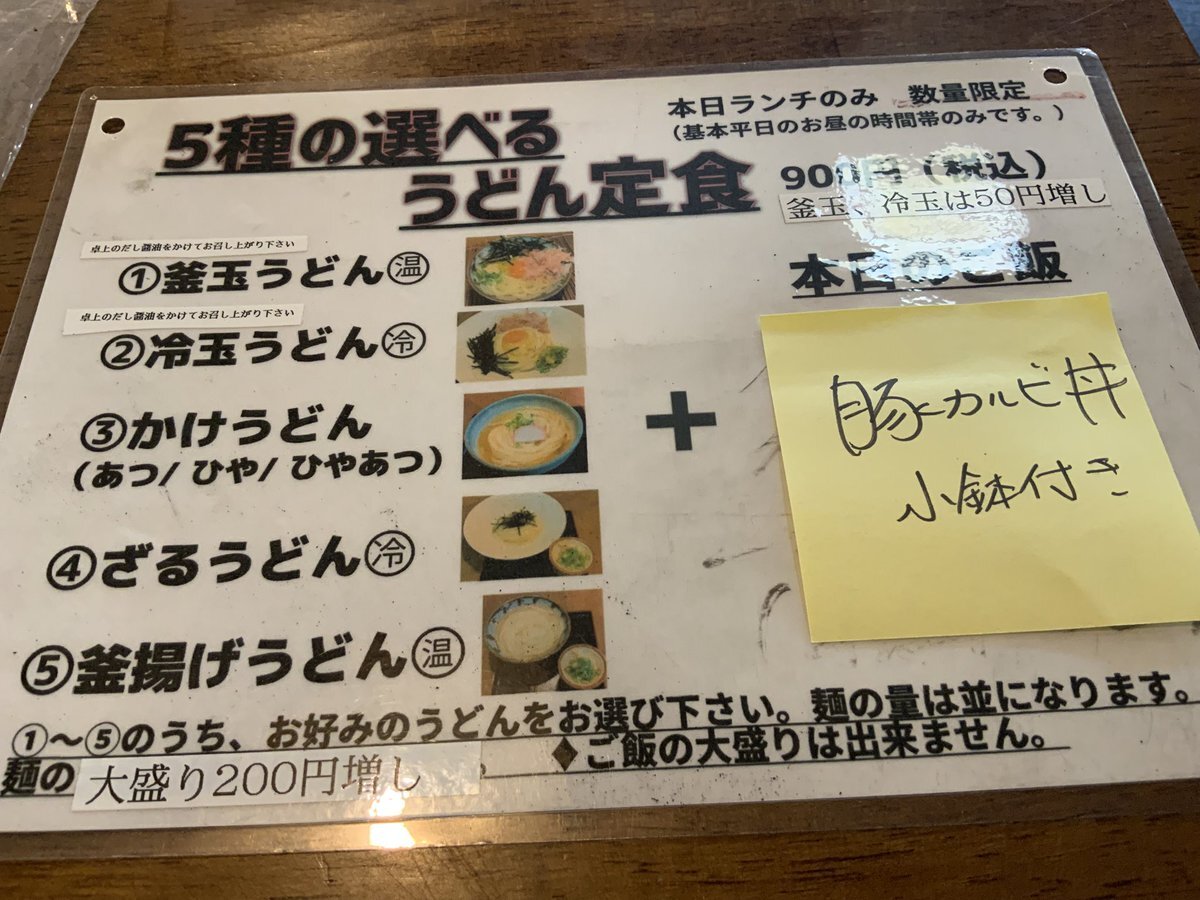 5種の選べる
うどん定食
本日ランチのみ 数量限定
(基本平日のお昼の時間帯のみです。)
900円(税込)
釜玉、冷玉は50円増し
卓上のだし醤油をかけてお召し上がり下さい
①釜玉うどん㊐温
卓上のだし醤油をかけてお召し上がり下さい
②冷玉うどん冷
③かけうどん
(あつ/ひや/ひやあつ)
④ざるうどん冷
⑤釜揚げうどん温
+
本日のご飯
豚カルビ丼
小鉢付き
①~⑤のうち、お好みのうどんをお選び下さい。麺の量は並になります。
麺の大盛り200円増し。◆ご飯の大盛りは出来ません。